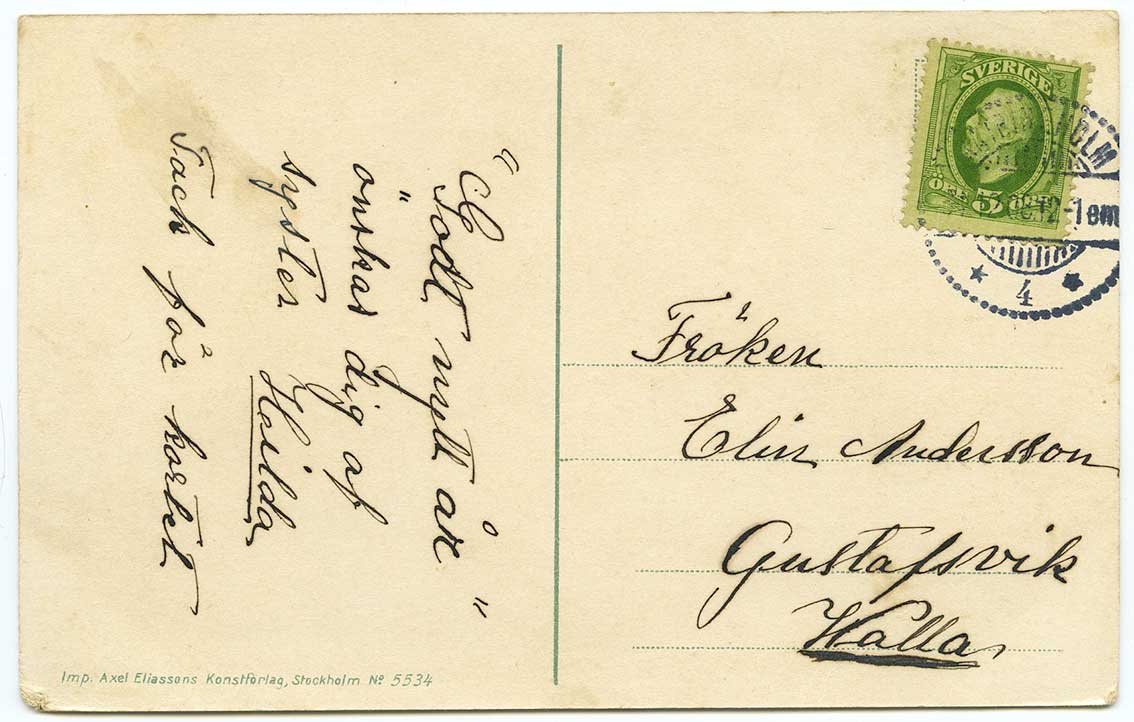 "Godt nytt år"
önskas dig af
syster
Hailda
Tack för kortet
SVERIGE
ÖRE 5 ÖRE
HOLM
12-1 em
4
Fröken
Elin Andersson
Gustafsvik
Walla
Imp. Axel Eliassons Konstförlag, Stockholm Nº 5534